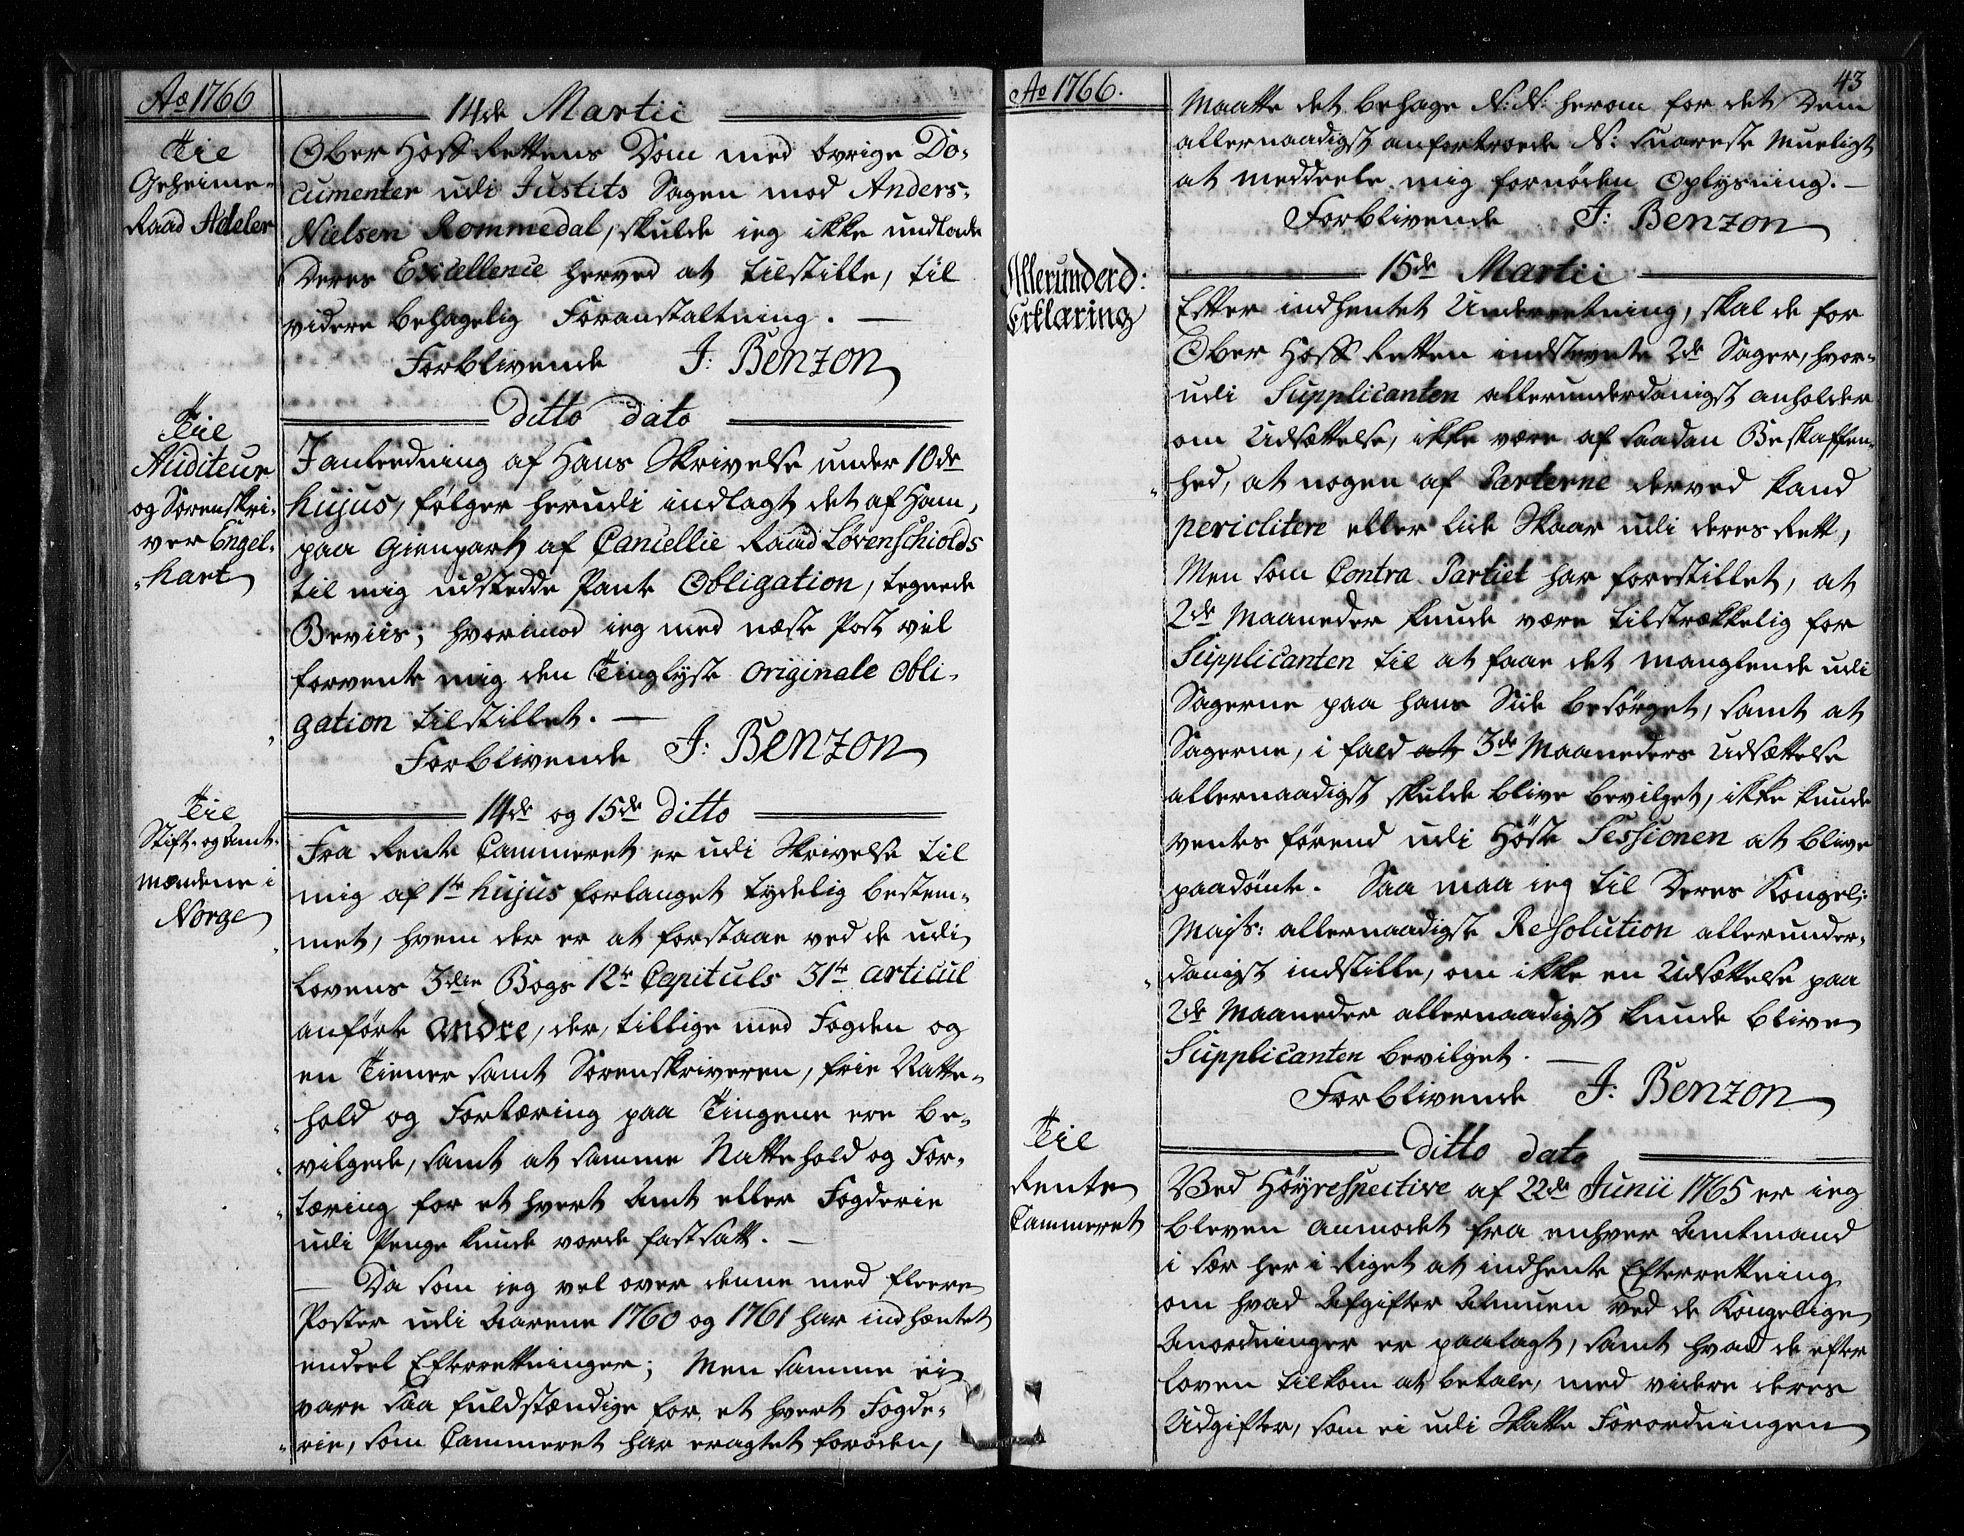 Ao 1766
14de Martii
Til
Geheime-
Raad Adeler
Ober Hoff Rettens Dom med övrige Do-
cumenter udi Justits Sagen mod Anders-
Nielsen Rommedal, skulde ieg ikke undlade
Deres Excellence herved at tilstille, til
videre behagelig Foranstaltning. —
Forblivende J: Benzon
ditto dato
Til
Auditeur
og Sorenskri-
ver Engel-
hart
I anledning af Hans Skrivelse under 10de
hujus, følger herudi indlagt det af Ham,
paa Gienpart af Cancellie Raad Løvenschiolds
til mig udstedde Pante Obligation, tegnede
Beviis; hvorimod ieg med næste Post vil
forvente mig den Tinglyste originale Obli-
gation tilstillet. —
Forblivende J: Benzon
14de og 15de ditto
Til
Stift- og Amt-
mændene i
Norge
Fra Rente Cammeret er udi Skrivelse til
mig af 1te hujus forlanget tydelig bestem-
met, hvem der er at forstaae ved de udi
Lovens 3die Bogs 12te Capituls 31te articul
anførte andre, der, tillige med Fogden og
en Tiener samt Sorenskriveren, frie Natte-
hold og Fortæring paa Tingene ere be-
vilgede, samt at samme Nattehold og For-
tæring for et hvert Amt eller Fogderie
udi Penge kunde vorde fastsatt. —
— Da som ieg vel over denne med fleere
Poster udi Aarene 1760 og 1761 har indhæntet
endeel Efterrettninger; Men samme ei
vare saa fuldstændige for et hvert Fogde-
rie, som Cammeret har eragtet forøden,
Ao 1766.
43
Maatte det behage N: N: herom for det Dem
allernaadigst anfortroede N: snareste mueligt
at meddeele mig fornöden Oplysning. —
Forblivende J: Benzon
15de Martii
Allerunderd:
Erklæring
Efter indhentet Underretning, skal de for
Ober Hoff Retten indstevnte 2de Sager, hvor-
udi Supplicanten allerunderdanigst anholder
om Udsættelse, ikke være af saadan Beskaffen-
hed, at nogen af Parterne derved kand
periclitere eller lide Skaar udi deres Rett,
Men som Contra Partiet har forestillet, at
2de Maaneder kunde være tilstrækkelig for
Supplicanten til at faae det manglende udi
Sagerne paa hans Side besörget, samt at
Sagerne, i fald at 3de Maaneders Udsættelse
allernaadigst skulde blive bevilget, ikke kunde
ventes förend udi Höst Sessionen at blive
paadömte. Saa maa ieg til Deres Kongel:
Majts: allernaadigste Resolution allerunder-
danigst indstille, om ikke en Udsættelse paa
2de Maaneder allernaadigst kunde blive
Supplicanten bevilget. —
Forblivende J: Benzon
ditto dato
Til
Rente
Cammeret
Ved Höyrespective af 22de Junii 1765 er ieg
bleven anmodet fra enhver Amtmand
i sær her i Riget at indhente Efterrettning
om hvad Afgifter Almuen ved de Kongelige
Anordninger er paalagt, samt hvad de efter
Loven tilkom at betale, med videre deres
Udgifter, som ei udi Skatte Forordningen